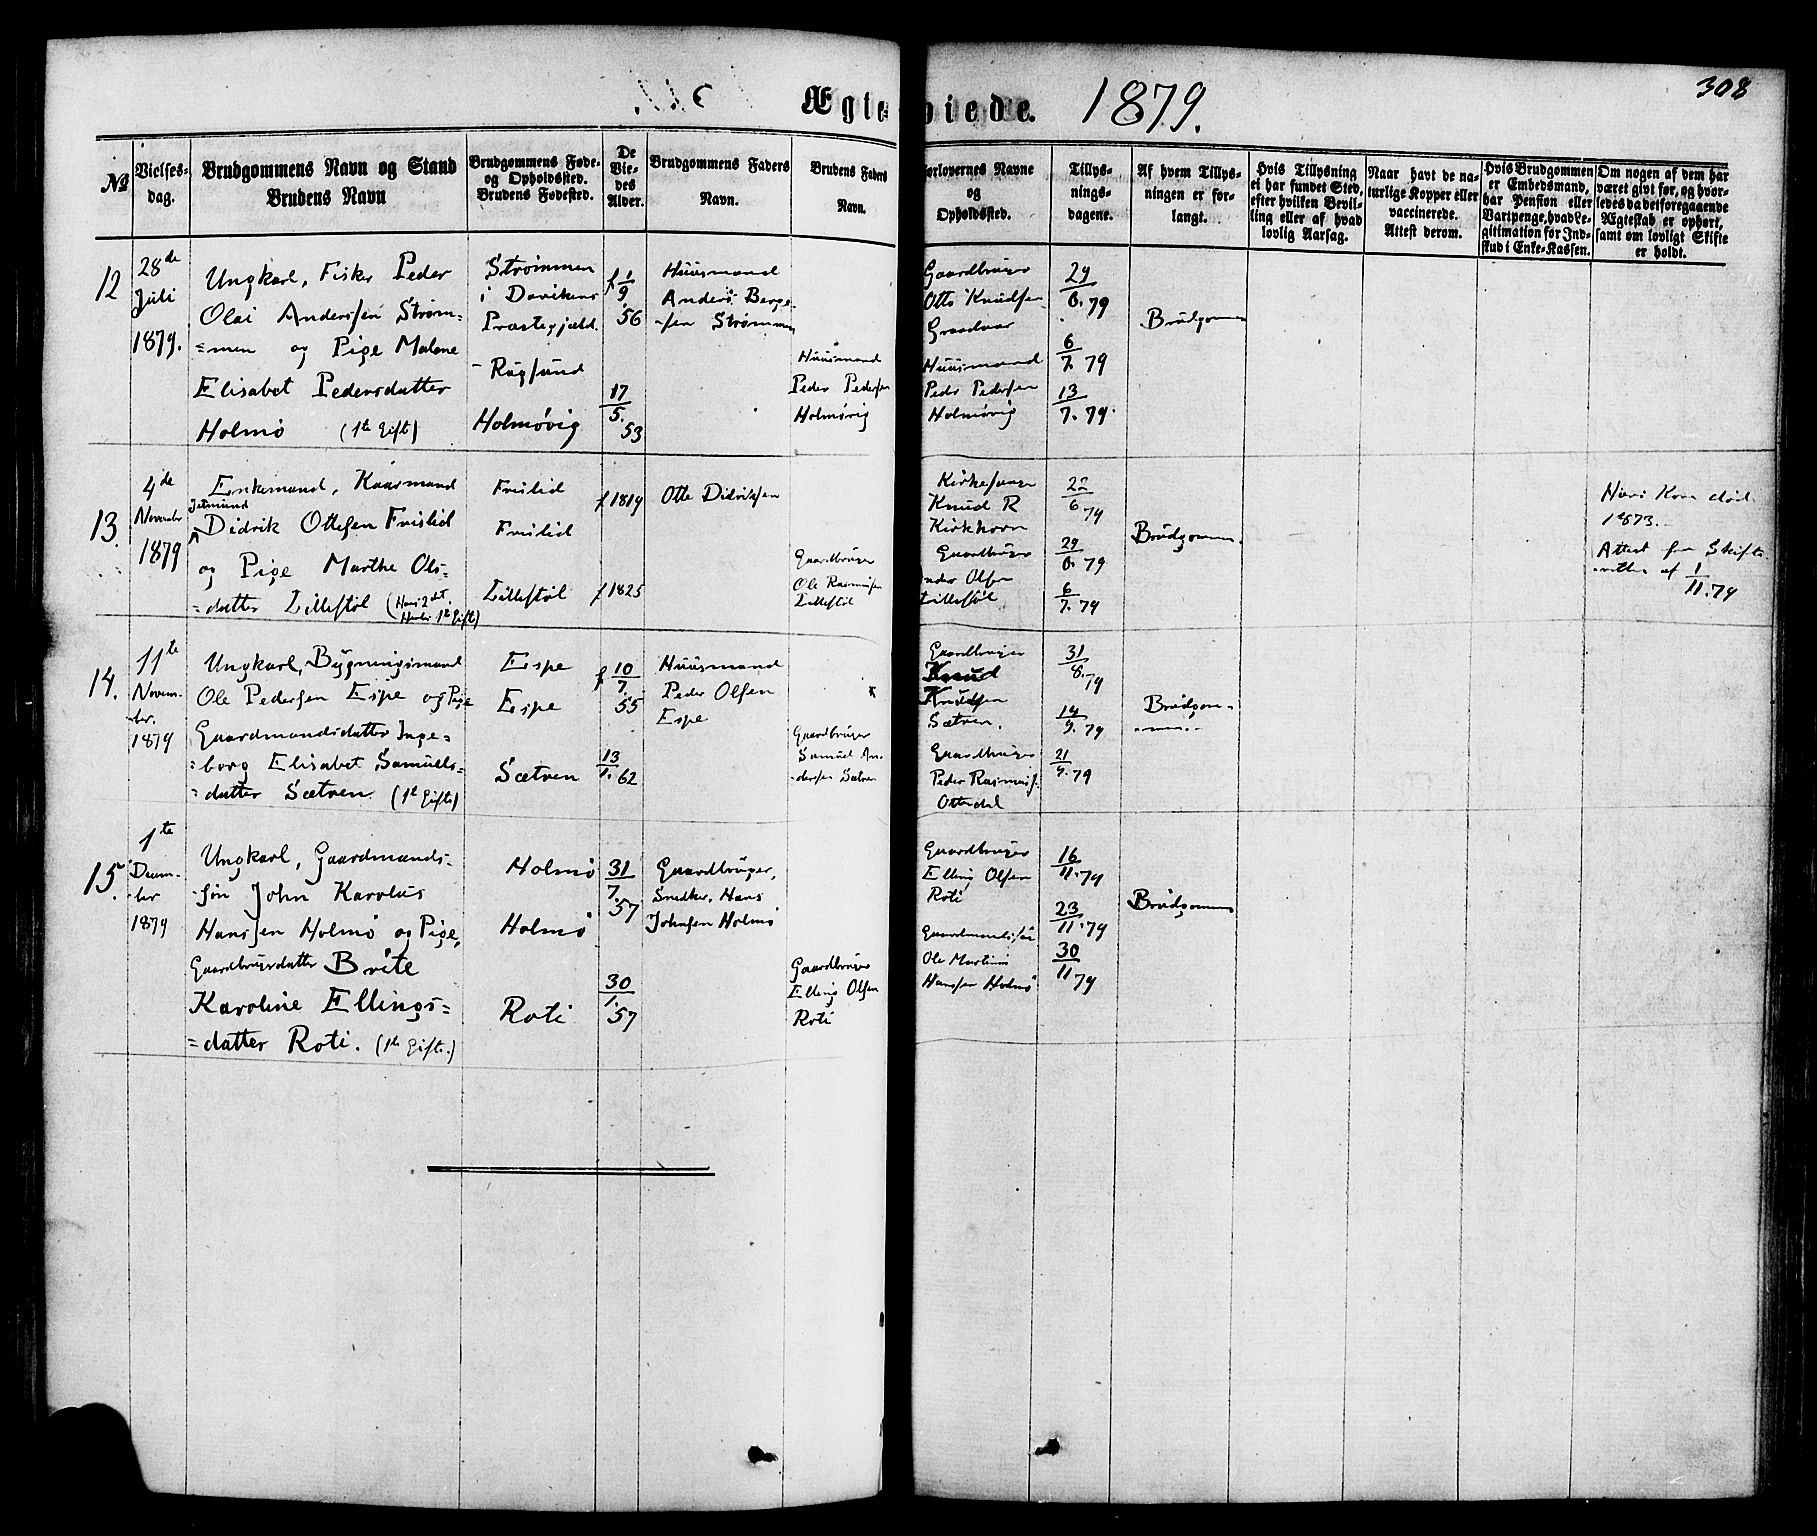 Ægteviede. 1879.
308
No
Vielses-
dag.
Brudgommens Navn og Stand
Brudens Navn
Brudgommens Føde-
og Opholdssted.
Brudens Fødested.
De
Vie-
des
Alder.
Brudgommens Faders
Navn.
Brudens Faders
Navn.
Forlovernes Navne
og
Opholdssted.
Tillys-
nings-
dagene.
Af hvem Tillys-
ningen er for-
langt.
Hvis Tillysning
ei har fundet Sted,
efter hvilken Bevil-
ling eller af hvad
lovlig Aarsag.
Naar havt de na-
turlige Kopper eller
vaccinerede.
Attest derom.
Hvis Brudgommen
er Embedsmand,
har Pension eller
Vartpenge, hvad Le-
gitimation for Ind-
skud i Enke-Kassen.
Om nogen af dem har
været givt før, og hvor-
ledes da det foregaaende
Ægteskab er ophørt,
samt om lovligt Skifte
er holdt.
12
28de
Juli
1879.
Ungkarl, Fisker Peder
Olai Anderssen Strøm=
=men og Pige Malene
Elisabet Pedersdatter
Holmø (1te Gift)
Strømmen
i Davikens
Præstegjæld.
Rugsund
Holmøvig
f 1/9.56
17/5.53
Huusmand
Anders Berge-
-sen Strømmen
Huusmand
Peder Pedersen
Holmøvig
Gaardbruger
Otto Knudsen
Graadvar
Huusmand
Peder Pedersen
Holmøvig
29/6.79
6/7.79
13/7.79.
Brudgommen
13.
4de
November
1879
Enkemand, Kaarmand
Jetmund
Didrik Ottesen Frislid
og Pige Marthe Ols=
=datter Lillestøl (Hans 2det, Hendes 1te Gift)
Frislid
Frislid
Lillestøl
f 1819
f 1825
Otte Didriksen
Gaardbruger
Ole Rasmusen
Lillestøl
Kirkesanger
Knud R
Kirkhorn
Gaardbruger
Peder Olsen
Lillestøl
22/6 79
29/6.79
6/7.79
Brudgommen.
Hans Kone død
1873.
Attest fra Skifte-
-retten af 1/11.79
14.
11te
Novem-
-ber.
1879
Ungkarl, Bygningsmand
Ole Pedersen Espe og Pige
Gaardmandsdatter Inge=
=borg Elisabet Samuels=
=datter Sætren. (1te Gifte)
Espe
Espe
Sætren
f 10/7.55
13/1.62
Huusmand
Peder Olsen
Espe
Gaardbruger
Samuel An-
-dersen Sætren
Gaardbruger
Knud
Knudsen
Sætren.
Gaardbruger
Peder Rasmuss.
Otterdal
31/8.79
14/9.79
21/9.79
Brudgom-
-men.-
15.
1te
Decem-
-ber
1879
Ungkarl, Gaardmands=
-søn John Karolus
Hanssen Holmø og Pige,
Gaardbrugerdatter Brite
Karoline Ellings=
=datter Roti. (1te Gifte.)
Holmø
Holmø
Roti
31/7.57
30/1.57
Gaardbruger,
Snedker, Hans
Johnsen Holmø
Gaardbruger
Elling Olsen
Roti
Gaardbruger
Elling Olsen
Roti
Gaardmandssøn
Ole Martinus
Hanssen Holmø
16/11.79
23/11.79
30/11 79
Brudgommen